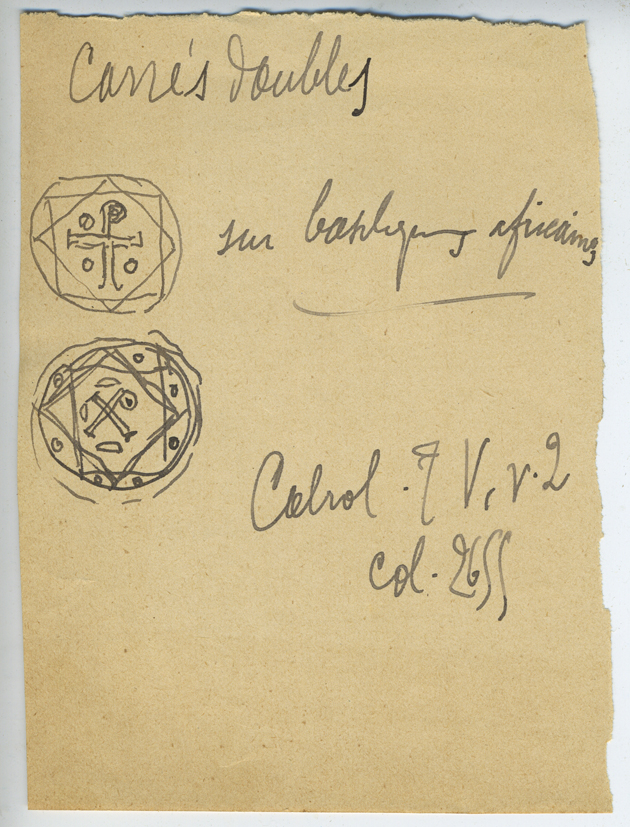 Carrés doubles
sur basiliques africaines
Cabrol. T V, v. 2
col. 2655